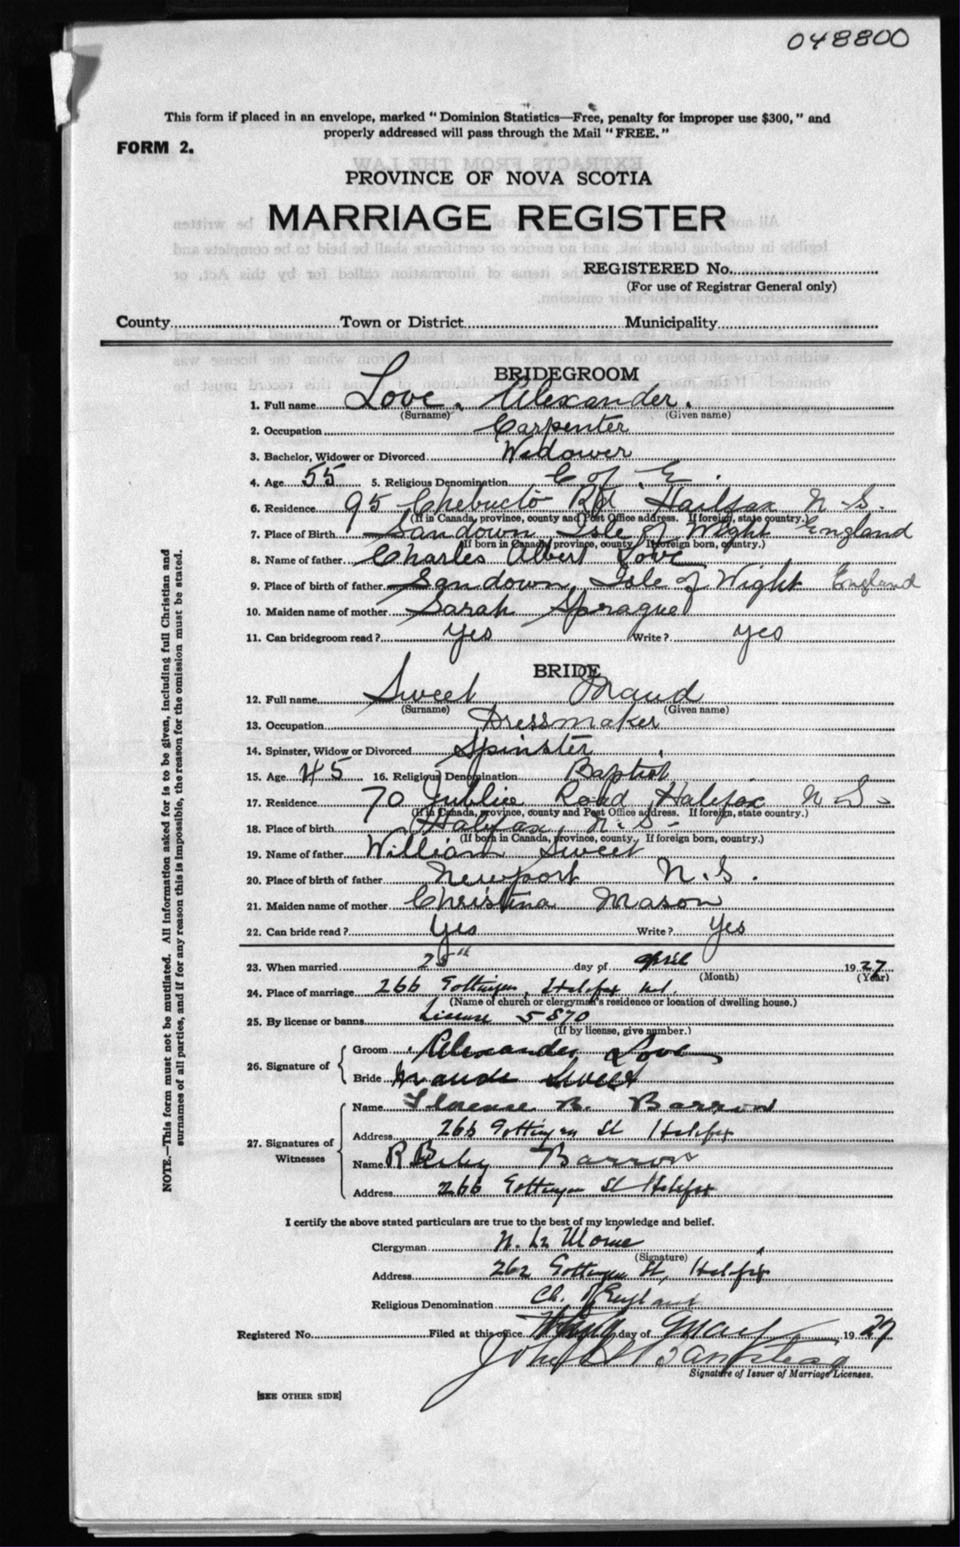 048800
This form if placed in an envelope, marked "Dominion Statistics—Free, penalty for improper use $300," and
properly addressed will pass through the Mail "FREE."
FORM 2.
PROVINCE OF NOVA SCOTIA
MARRIAGE REGISTER
REGISTERED No.
(For use of Registrar General only)
County Town or District Municipality
BRIDEGROOM
1. Full name Love, Alexander.
(Surname) (Given name)
2. Occupation Carpenter
3. Bachelor, Widower or Divorced Widower
4. Age 55 5. Religious Denomination C of E.
6. Residence 95 Chebucto Rd Halifax N.S.
(If in Canada, province, county and Post Office address. If foreign, state country.)
7. Place of Birth Sandown Isle of Wight England
(If born in Canada, province, county. If foreign born, country.)
8. Name of father Charles Albert Love
9. Place of birth of father Sandown, Isle of Wight England
10. Maiden name of mother Sarah Sprague
11. Can bridegroom read? yes Write? yes
BRIDE
12. Full name Sweet Maud
(Surname) (Given name)
13. Occupation Dressmaker
14. Spinster, Widow or Divorced Spinster
15. Age 45 16. Religious Denomination Baptist
17. Residence 70 Jubilee Road Halifax N.S.
(If in Canada, province, county and Post Office address. If foreign, state country.)
18. Place of birth Halifax N.S.
(If born in Canada, province, county. If foreign born, country.)
19. Name of father William Sweet
20. Place of birth of father Newport N.S.
21. Maiden name of mother Christina Mason
22. Can bride read? Yes Write? Yes
23. When married day of April 1927
(Month) (Year)
24. Place of marriage 266 Gottingen, Halifax
(Name of church or clergyman's residence or location of dwelling house.)
25. By license or banns License 5870
(If by license, give number.)
26. Signature of
Groom Alexander Love
Bride Maude Sweet
27. Signatures of Witnesses
Name Florence B. Barron
Address 266 Gottingen St Halifax
Name R Barron
Address 266 Gottingen St Halifax
I certify the above stated particulars are true to the best of my knowledge and belief.
Clergyman N.
(Signature)
Address 262 Gottingen St, Halifax
Religious Denomination Ch. of England
Registered No. Filed at this office day of 1927
John
Signature of Issuer of Marriage Licenses.
[SEE OTHER SIDE]
NOTE.—This form must not be mutilated. All information asked for is to be given, including full Christian and
surnames of all parties, and if for any reason this is impossible, the reason for the omission must be stated.